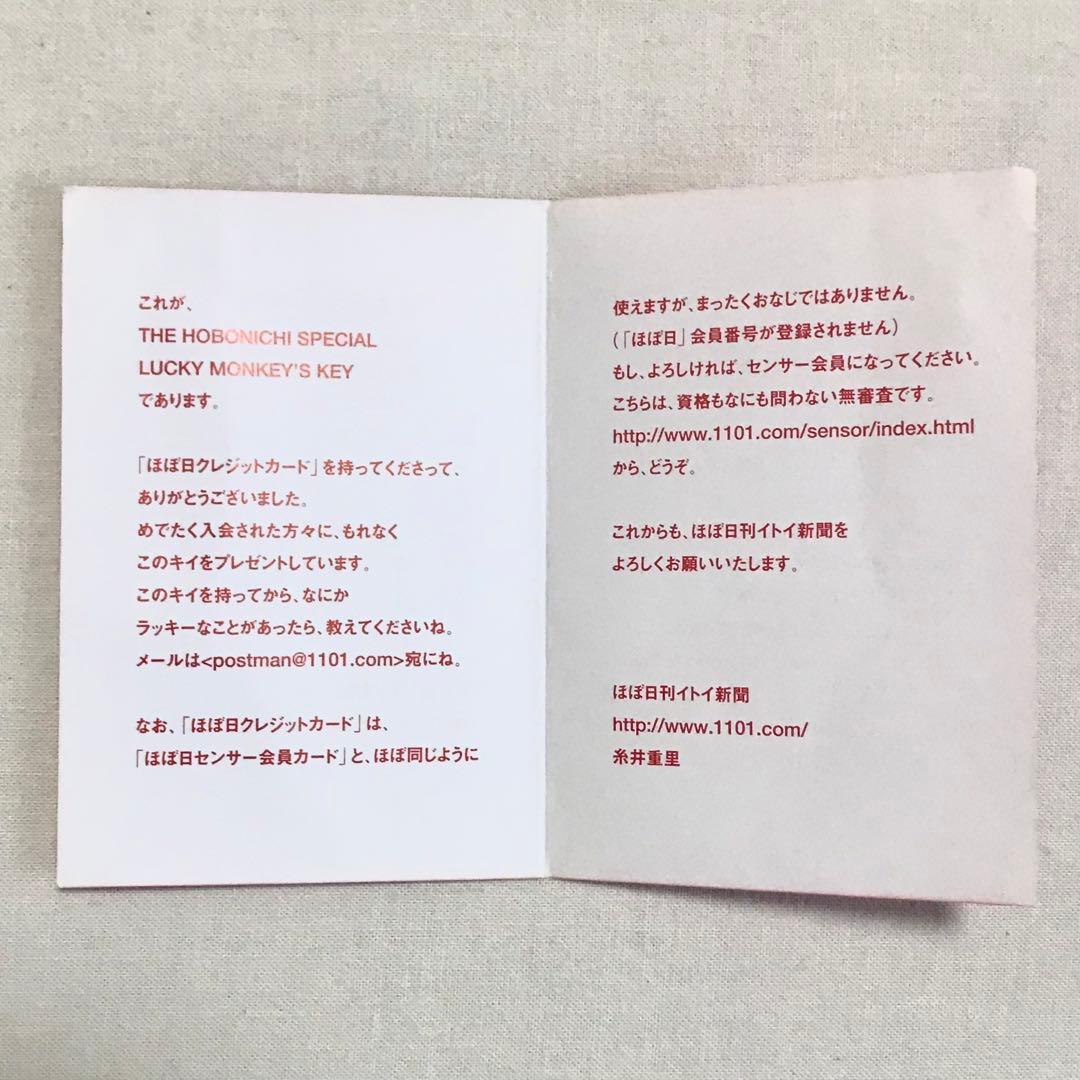 これが、
THE HOBONICHI SPECIAL
LUCKY MONKEY'S KEY
であります。
「ほぼ日クレジットカード」を持ってくださって、
ありがとうございました。
めでたく入会された方々に、もれなく
このキイをプレゼントしています。
このキイを持ってから、なにか
ラッキーなことがあったら、教えてくださいね。
メールは<postman@1101.com>宛にね。
なお、「ほぼ日クレジットカード」は、
「ほぼ日センサー会員カード」と、ほぼ同じように
使えますが、まったくおなじではありません。
（「ほぼ日」会員番号が登録されません）
もし、よろしければ、センサー会員になってください。
こちらは、資格もなにも問わない無審査です。
http://www.1101.com/sensor/index.html
から、どうぞ。
これからも、ほぼ日刊イトイ新聞を
よろしくお願いいたします。
ほぼ日刊イトイ新聞
http://www.1101.com/
糸井重里